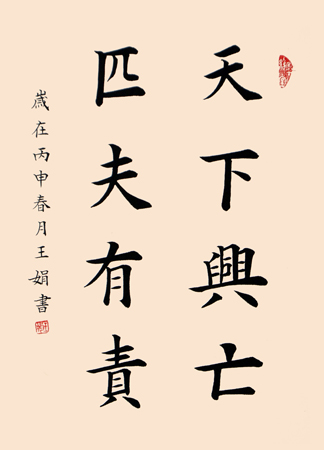 天下興亡
匹夫有責
歲在丙申春月王娟書